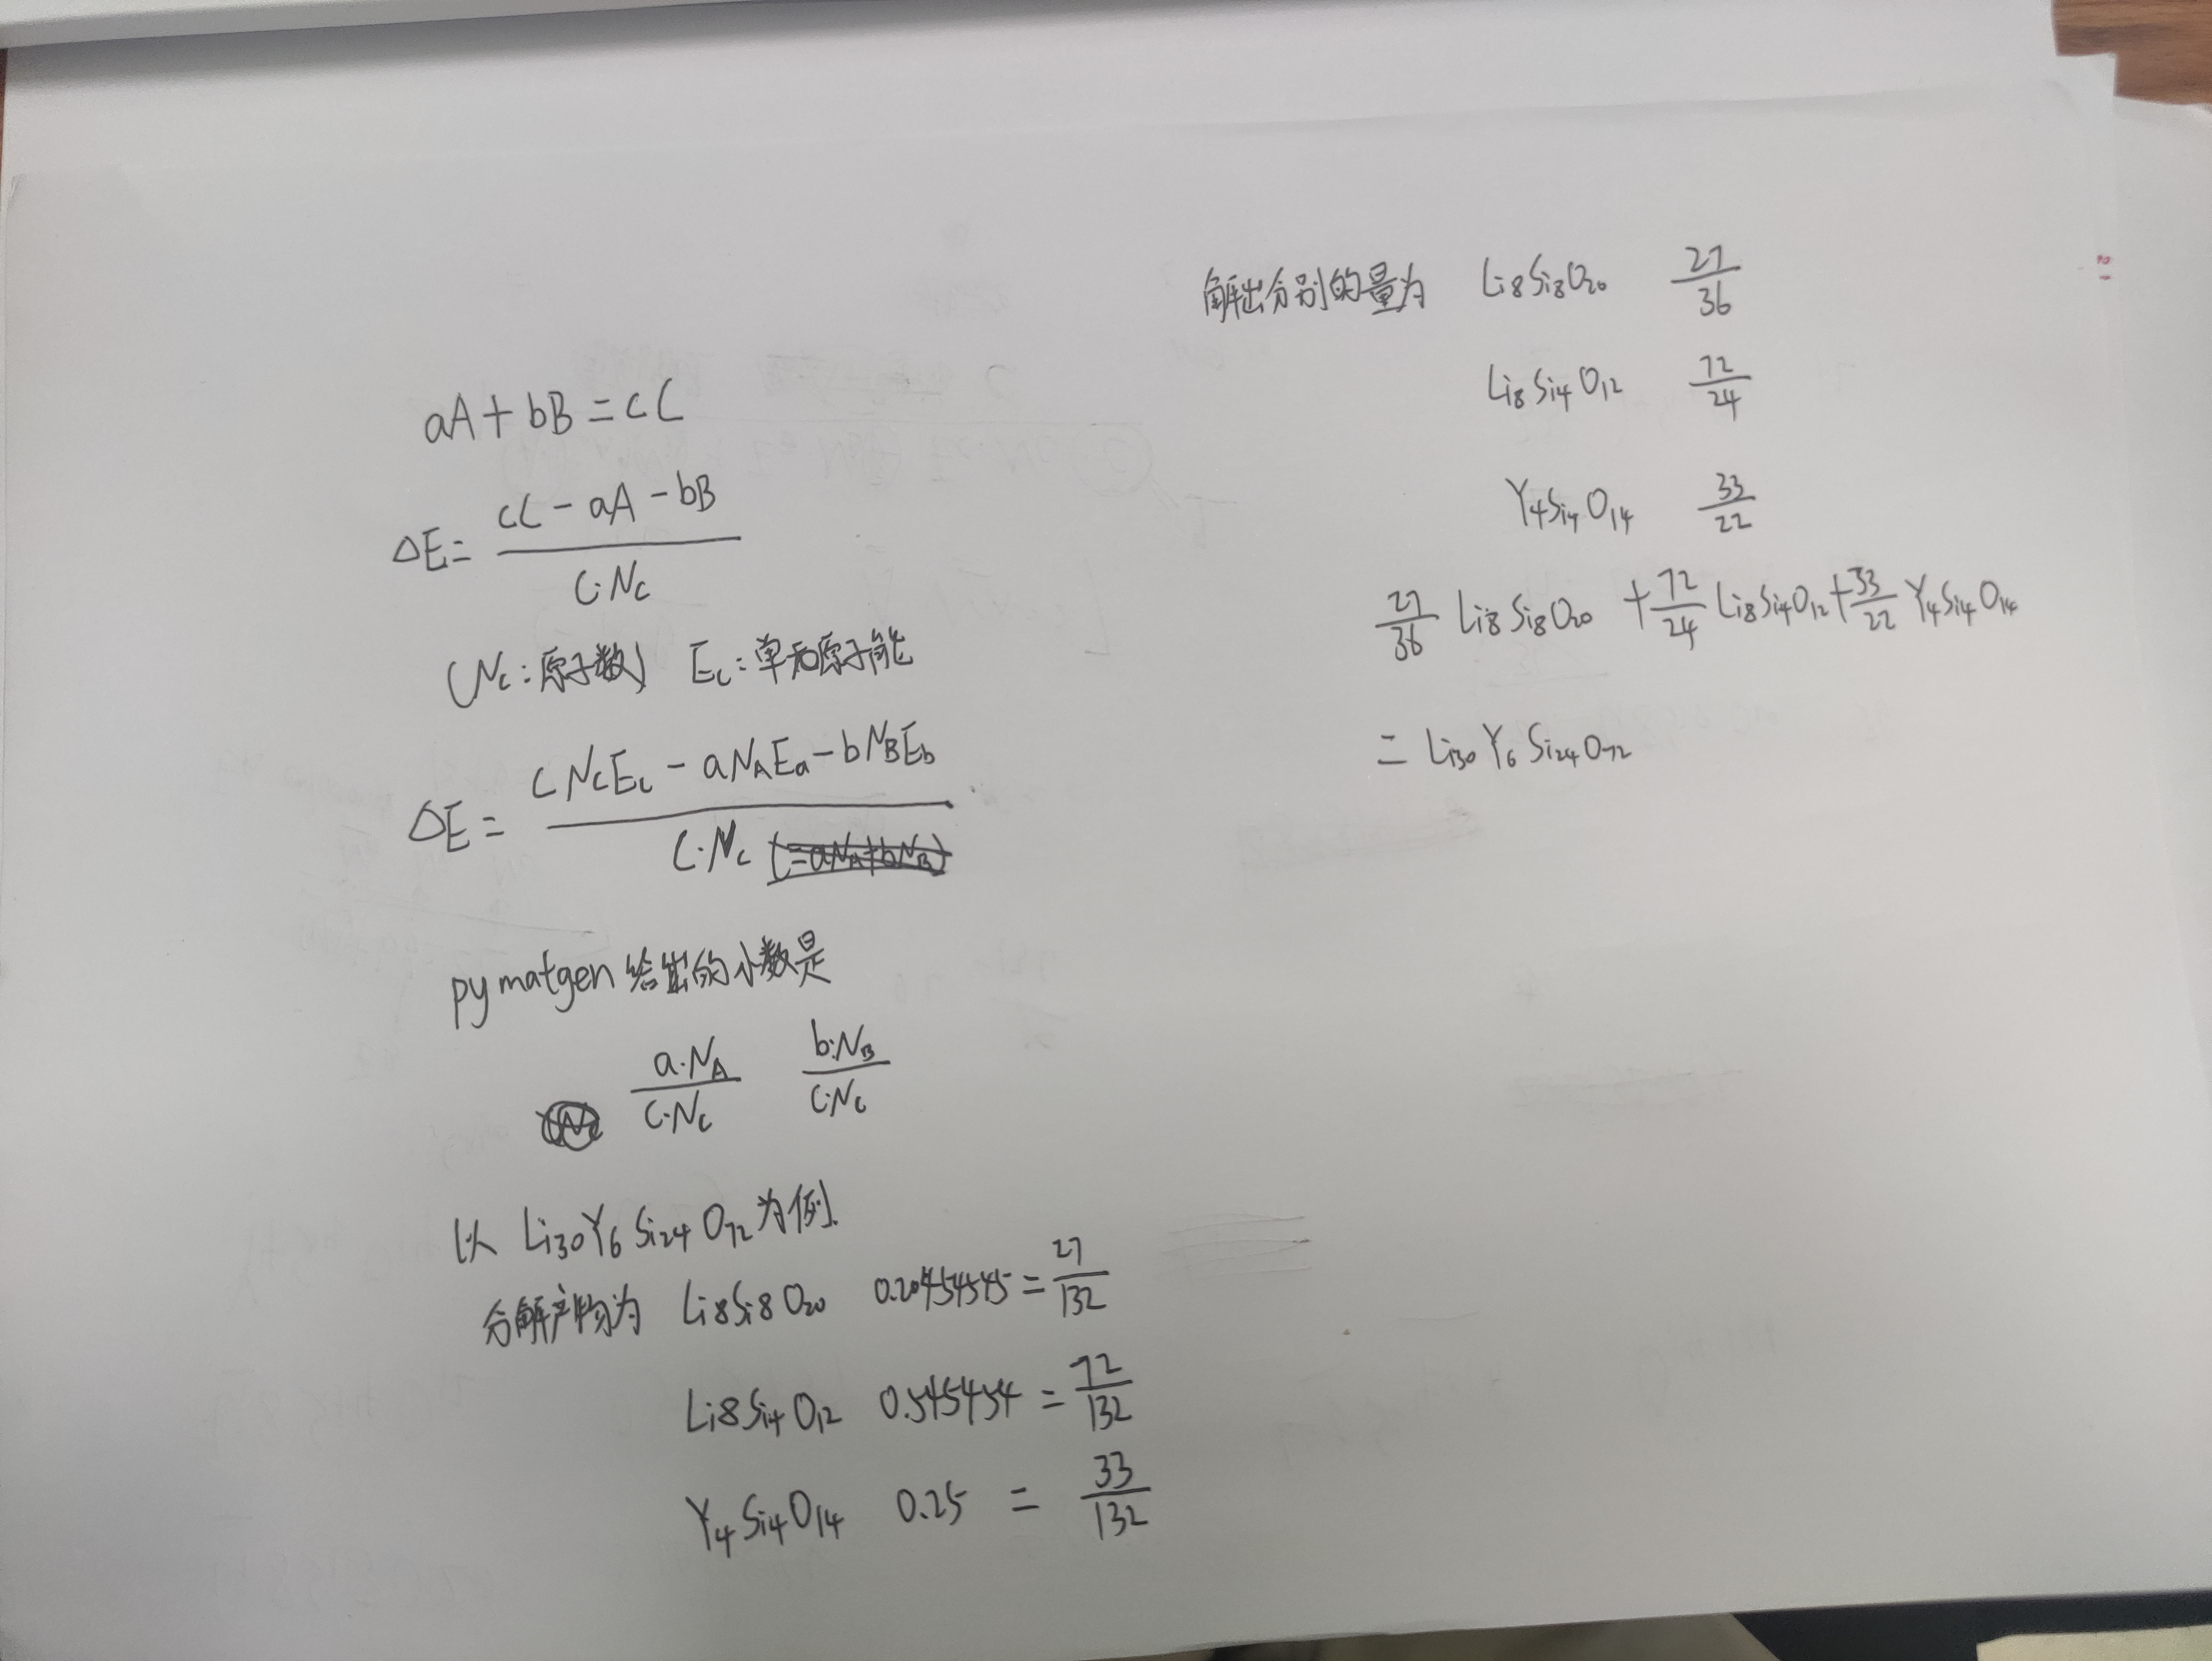 aA + bB = cC
ΔE = (cC - aA - bB) / (C·Nc)
(Nc:原子数) Ec:单和原子能
ΔE = (CNcEc - aNAEa - bNBEb) / (C·Nc)
pymatgen 给出的小数是
a·NA / C·Nc    b·NB / C·Nc
以 Li30Y6Si24O72 为例.
分解产物为 Li8Si8O20 0.20454545 = 27/132
Li8Si4O12 0.545454 = 72/132
Y4Si4O14 0.25 = 33/132
解出分别的量为 Li8Si8O20 27/36
Li8Si4O12 72/24
Y4Si4O14 33/22
27/36 Li8Si8O20 + 72/24 Li8Si4O12 + 33/22 Y4Si4O14
= Li30Y6Si24O72